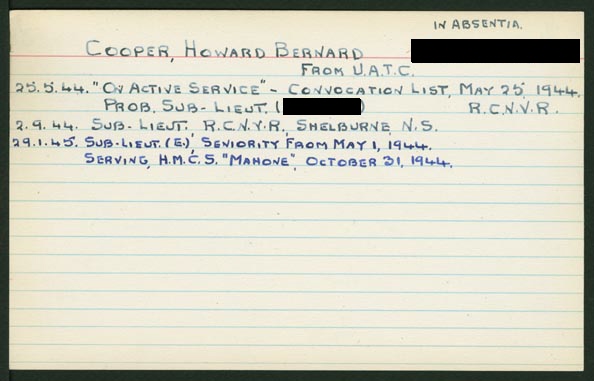 IN ABSENTIA.
COOPER, HOWARD BERNARD
FROM U.A.T.C.
25.5.44. "ON ACTIVE SERVICE" - CONVOCATION LIST, MAY 25, 1944.
PROB. SUB-LIEUT. ( ) R.C.N.V.R.
2.9.44. SUB-LIEUT., R.C.N.V.R., SHELBURNE, N.S.
29.1.45. SUB-LIEUT. (E.), SENIORITY FROM MAY 1, 1944.
SERVING, H.M.C.S. "MAHONE", OCTOBER 31, 1944.